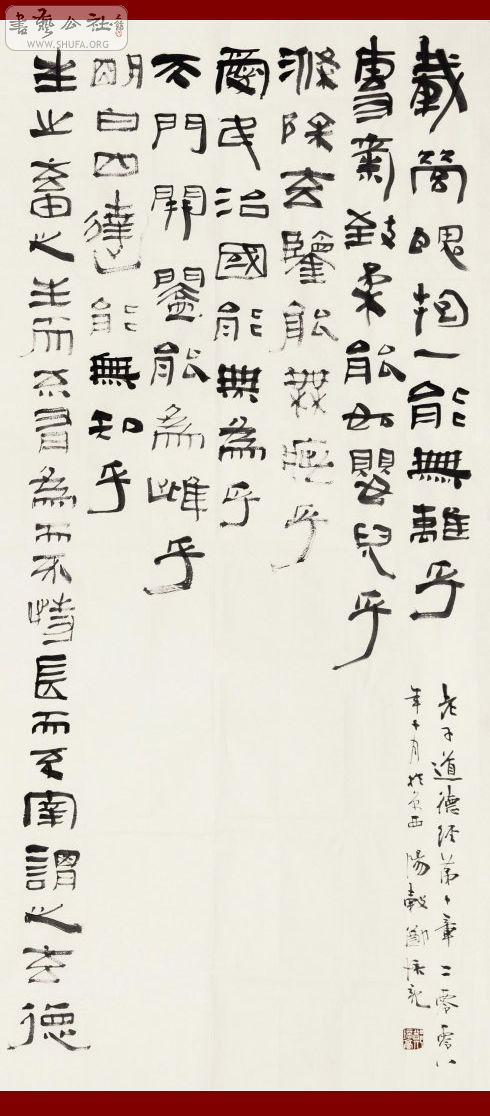 書藝公社
WWW.SHUFA.ORG
載營魄抱一能無離乎
專氣致柔能如嬰兒乎
滌除玄鑒能無疵乎
愛民治國能無為乎
天門開闔能為雌乎
明白四達能無知乎
生之畜之生而不有為而不恃長而不宰謂之玄德
老子道德經第十章二零零八
年十月於京西陽穀鄭培亮